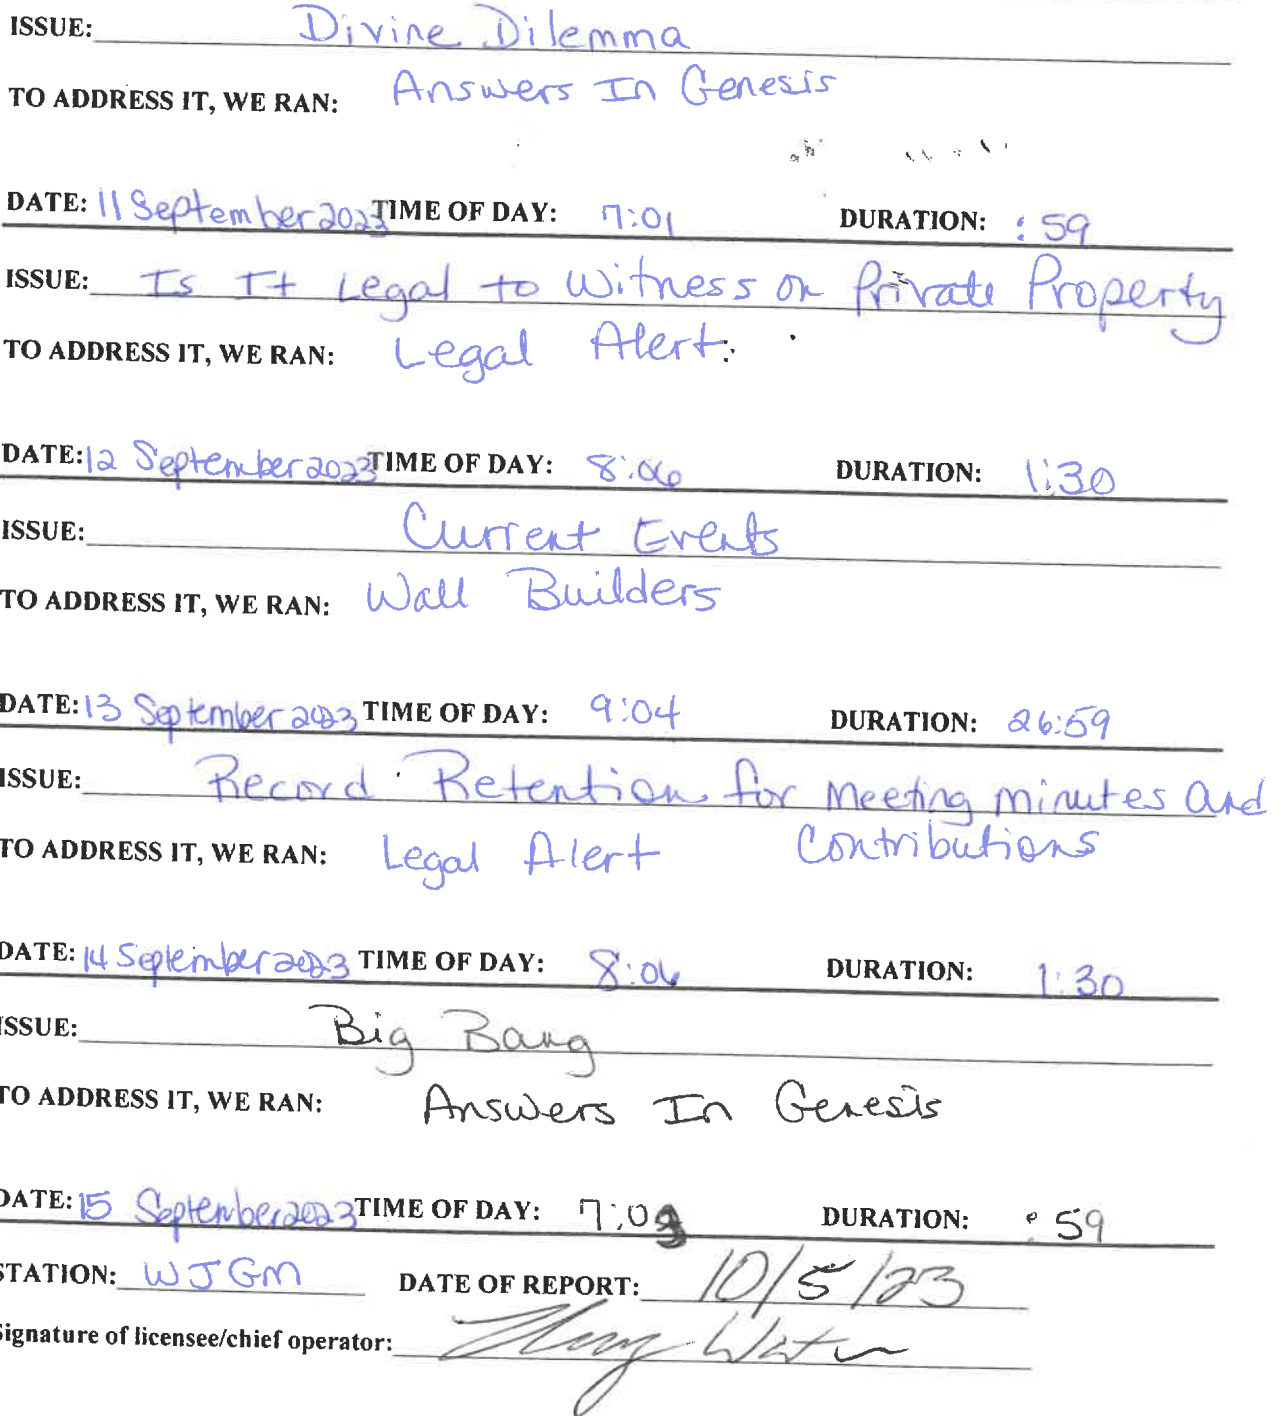 ISSUE: Divine Dilemma
TO ADDRESS IT, WE RAN: Answers In Genesis
DATE: 11 September 2023 TIME OF DAY: 7:01 DURATION: :59
ISSUE: Is It Legal to Witness on Private Property
TO ADDRESS IT, WE RAN: Legal Alert
DATE: 12 September 2023 TIME OF DAY: 8:06 DURATION: 1:30
ISSUE: Current Events
TO ADDRESS IT, WE RAN: Wall Builders
DATE: 13 September 2023 TIME OF DAY: 9:04 DURATION: 26:59
ISSUE: Record Retention for Meeting minutes and
TO ADDRESS IT, WE RAN: Legal Alert Contributions
DATE: 14 September 2023 TIME OF DAY: 8:06 DURATION: 1:30
ISSUE: Big Bang
TO ADDRESS IT, WE RAN: Answers In Genesis
DATE: 15 September 2023 TIME OF DAY: DURATION: :59
STATION: WJGM DATE OF REPORT: 10/5/23
Signature of licensee/chief operator: